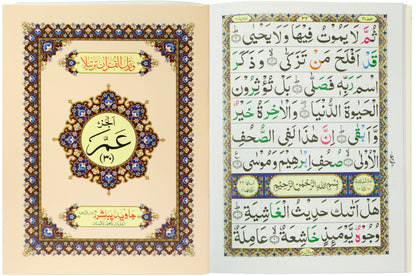 ورتل القرآن ترتيلا
الجزء
عَمَّ
(٣٠)
ثُمَّ لَا يَمُوتُ فِيهَا وَلَا يَحْيٰى
قَدْ اَفْلَحَ مَنْ تَزَكّٰى وَ ذَكَرَ
اسْمَ رَبِّهٖ فَصَلّٰى بَلْ تُؤْثِرُوْنَ
الْحَيٰوةَ الدُّنْيَا وَالْاٰخِرَةُ خَيْرٌ
وَّ اَبْقٰى اِنَّ هٰذَا لَفِى الصُّحُفِ
الْاُوْلٰى صُحُفِ اِبْرٰهِيْمَ وَمُوْسٰى
بِسْمِ اللّٰهِ الرَّحْمٰنِ الرَّحِيْمِ
هَلْ اَتٰىكَ حَدِيْثُ الْغَاشِيَةِ
وُجُوْهٌ يَّوْمَئِذٍ خَاشِعَةٌ عَامِلَةٌ